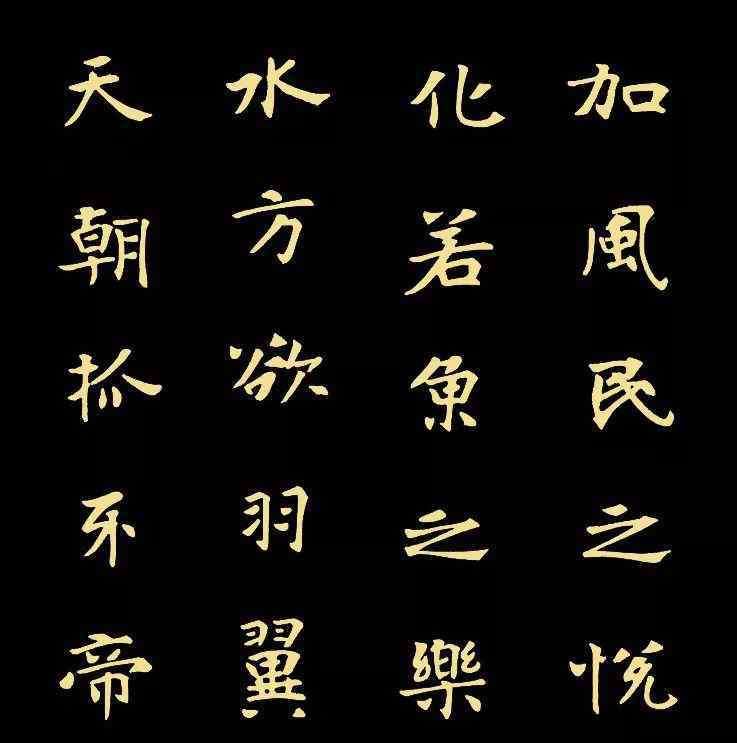 加風民之悅
化若魚之樂
水方欲羽翼
天朝抓牙帝